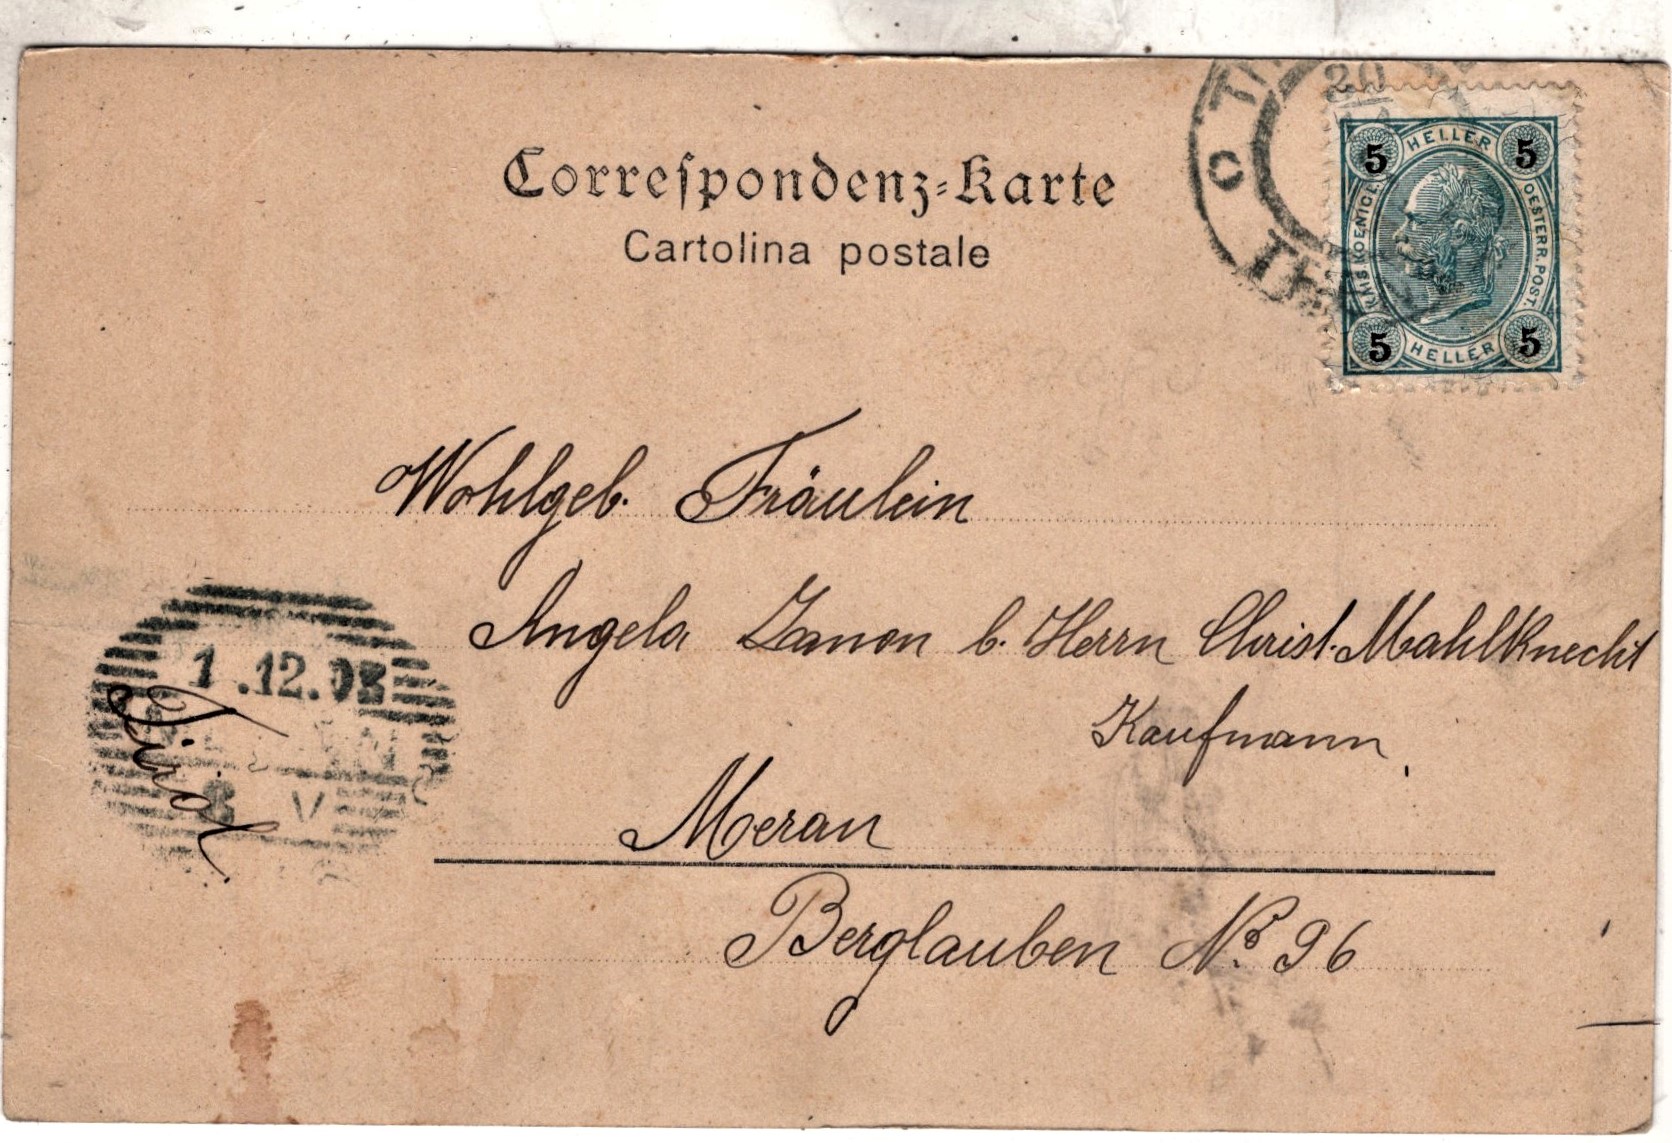 Correspondenz-Karte
Cartolina postale
20
5 HELLER 5
KAIS. KOENIGL. OESTERR. POST.
5 HELLER 5
Wohlgeb. Fräulein
Angela Zanon b. Herrn Christ. Mahlknecht
Kaufmann
Meran
Berglauben No. 96
1.12.03
Tirol
8 V